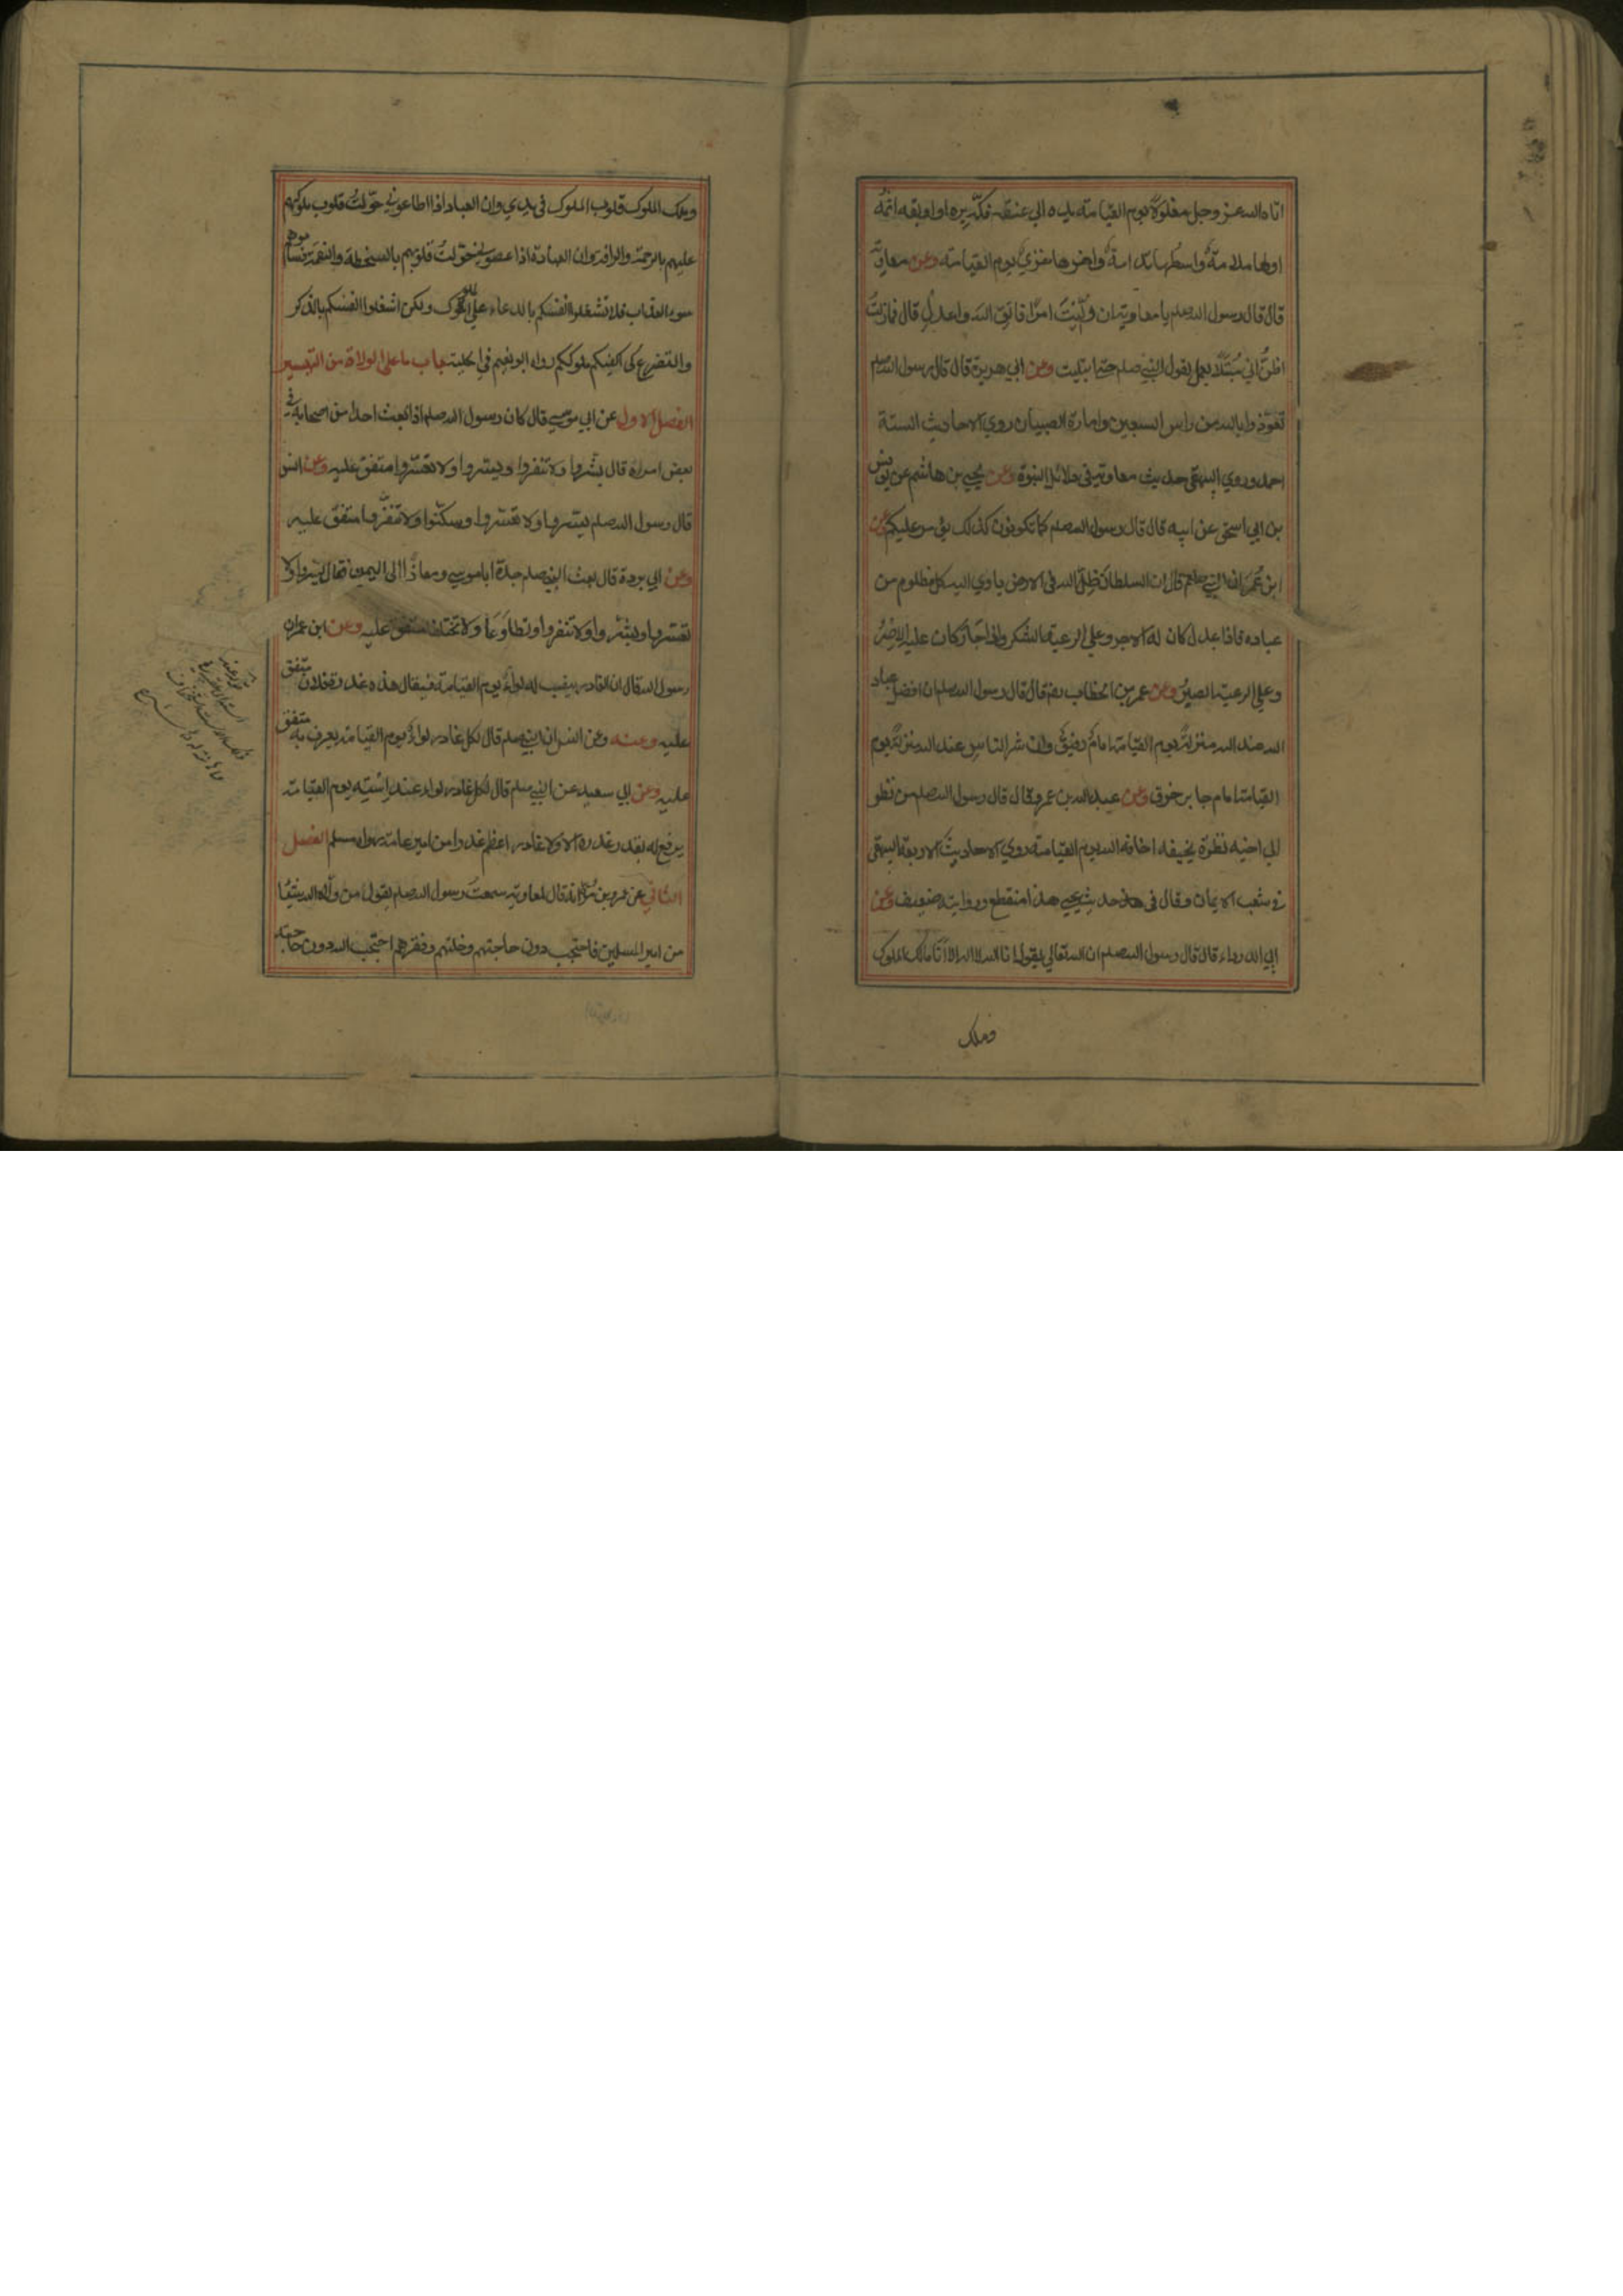 اتاه الله عز وجل مغلولا يوم القيامة يده الي عنقه فكّه بره او اوبقه اثمه
اولها ملامة واوسطها ندامة واخرها خزي يوم القيامة وعن معاوية
قال قال رسول الله صلعم يا معاوية ان وُلّيتَ امرًا فاتق الله واعدل قال فما زلتُ
اظنّ اني مُبتلًا بعمل لقول النبي صلعم حتى ابتليت وعن ابي هريرة قال قال رسول الله صلعم
تعوّذوا بالله من راس السبعين وامارة الصبيان روي الاحاديث الستة
احمد وروي البيهقي حديث معاوية في دلائل النبوة وعن يحيي بن هاشم عن يونس
بن ابي اسحق عن ابيه قال قال رسول الله صلعم كما تكونون كذلك يؤمر عليكم وعن
ابن عُمَر ان النبي صلعم قال ان السلطان ظلّ الله في الارض ياوي اليه كل مظلوم من
عباده فاذا عدل كان له الاجر وعلي الرعية الشكر واذا جار كان عليه الاِصْرُ
وعلي الرعية الصبرُ وعن عمر بن الخطاب رضه قال قال رسول الله صلعم ان افضل عباد
الله عند الله منزلةً يوم القيامة امامٌ رفيقٌ وان شر الناس عند الله منزلةً يوم
القيامة امام جابر خرق وعن عبد الله بن عمرو قال قال رسول الله صلعم من نظر
الي اخيه نظرة يخيفه اخافه الله يوم القيامة روي الاحاديث الاربعة البيهقي
في شعب الايمان وقال في حديث يحيي هذا منقطع وروايته ضعيف وعن
ابي الدرداء قال قال رسول الله صلعم ان الله تعالي يقول انا الله لا اله الا اَنَا مالك الملوك
وملك
وملك الملوك قلوب الملوك في يدي وان العباد اذا اطاعوني حوّلتُ قلوب ملوكهم
عليهم بالرحمة والرافة وان العباد اذا عصوني حوّلتُ قلوبهم بالسخطة والنقمة فساموهم
سوء العذاب فلا تشغلوا انفسكم بالدعاء علي الملوك ولكن اشغلوا انفسكم بالذكر
والتضرع كي اكفيكم ملوككم رواه ابو نعيم في الحلية باب ما علي الولاة من التيسير
الفصل الاول عن ابي موسي قال كان رسول الله صلعم اذا بعث احدا من اصحابه في
بعض امره قال بشّروا ولا تنفروا ويسّروا ولا تعسّروا متفق عليه وعن انس
قال رسول الله صلعم يسّروا ولا تعسّروا وسكّنوا ولا تنفّروا متفق عليه
وعن ابي بردة قال بعث النبي صلعم جدة ابا موسي ومعاذًا الي اليمن فقال يسّروا ولا
تعسّروا وبشّروا ولا تنفروا وتطاوعا ولا تختلفا متفق عليه وعن ابن عمر ان
رسول الله قال ان الغادر ينصب له لواءٌ يوم القيامة فيقال هذه غدرة فلان متفق
عليه وعنه وعن انس ان النبي صلعم قال لكل غادر لواءٌ يوم القيامة يعرف به متفق
عليه وعن ابي سعيد عن النبي صلعم قال لكل غادر لواء عند اِسْتِه يوم القيامة
يرفع له بقدر غدره الا ولا غادر اعظم غدرا من امير عامة رواه مسلم الفصل
الثاني عن عمرو بن مُرّة انه قال لمعاوية سمعتُ رسول الله صلعم يقول من ولّاه الله شيئا
من امر المسلمين فاحتجب دون حاجتهم وخلتهم وفقرهم احتجب الله دون حاجته